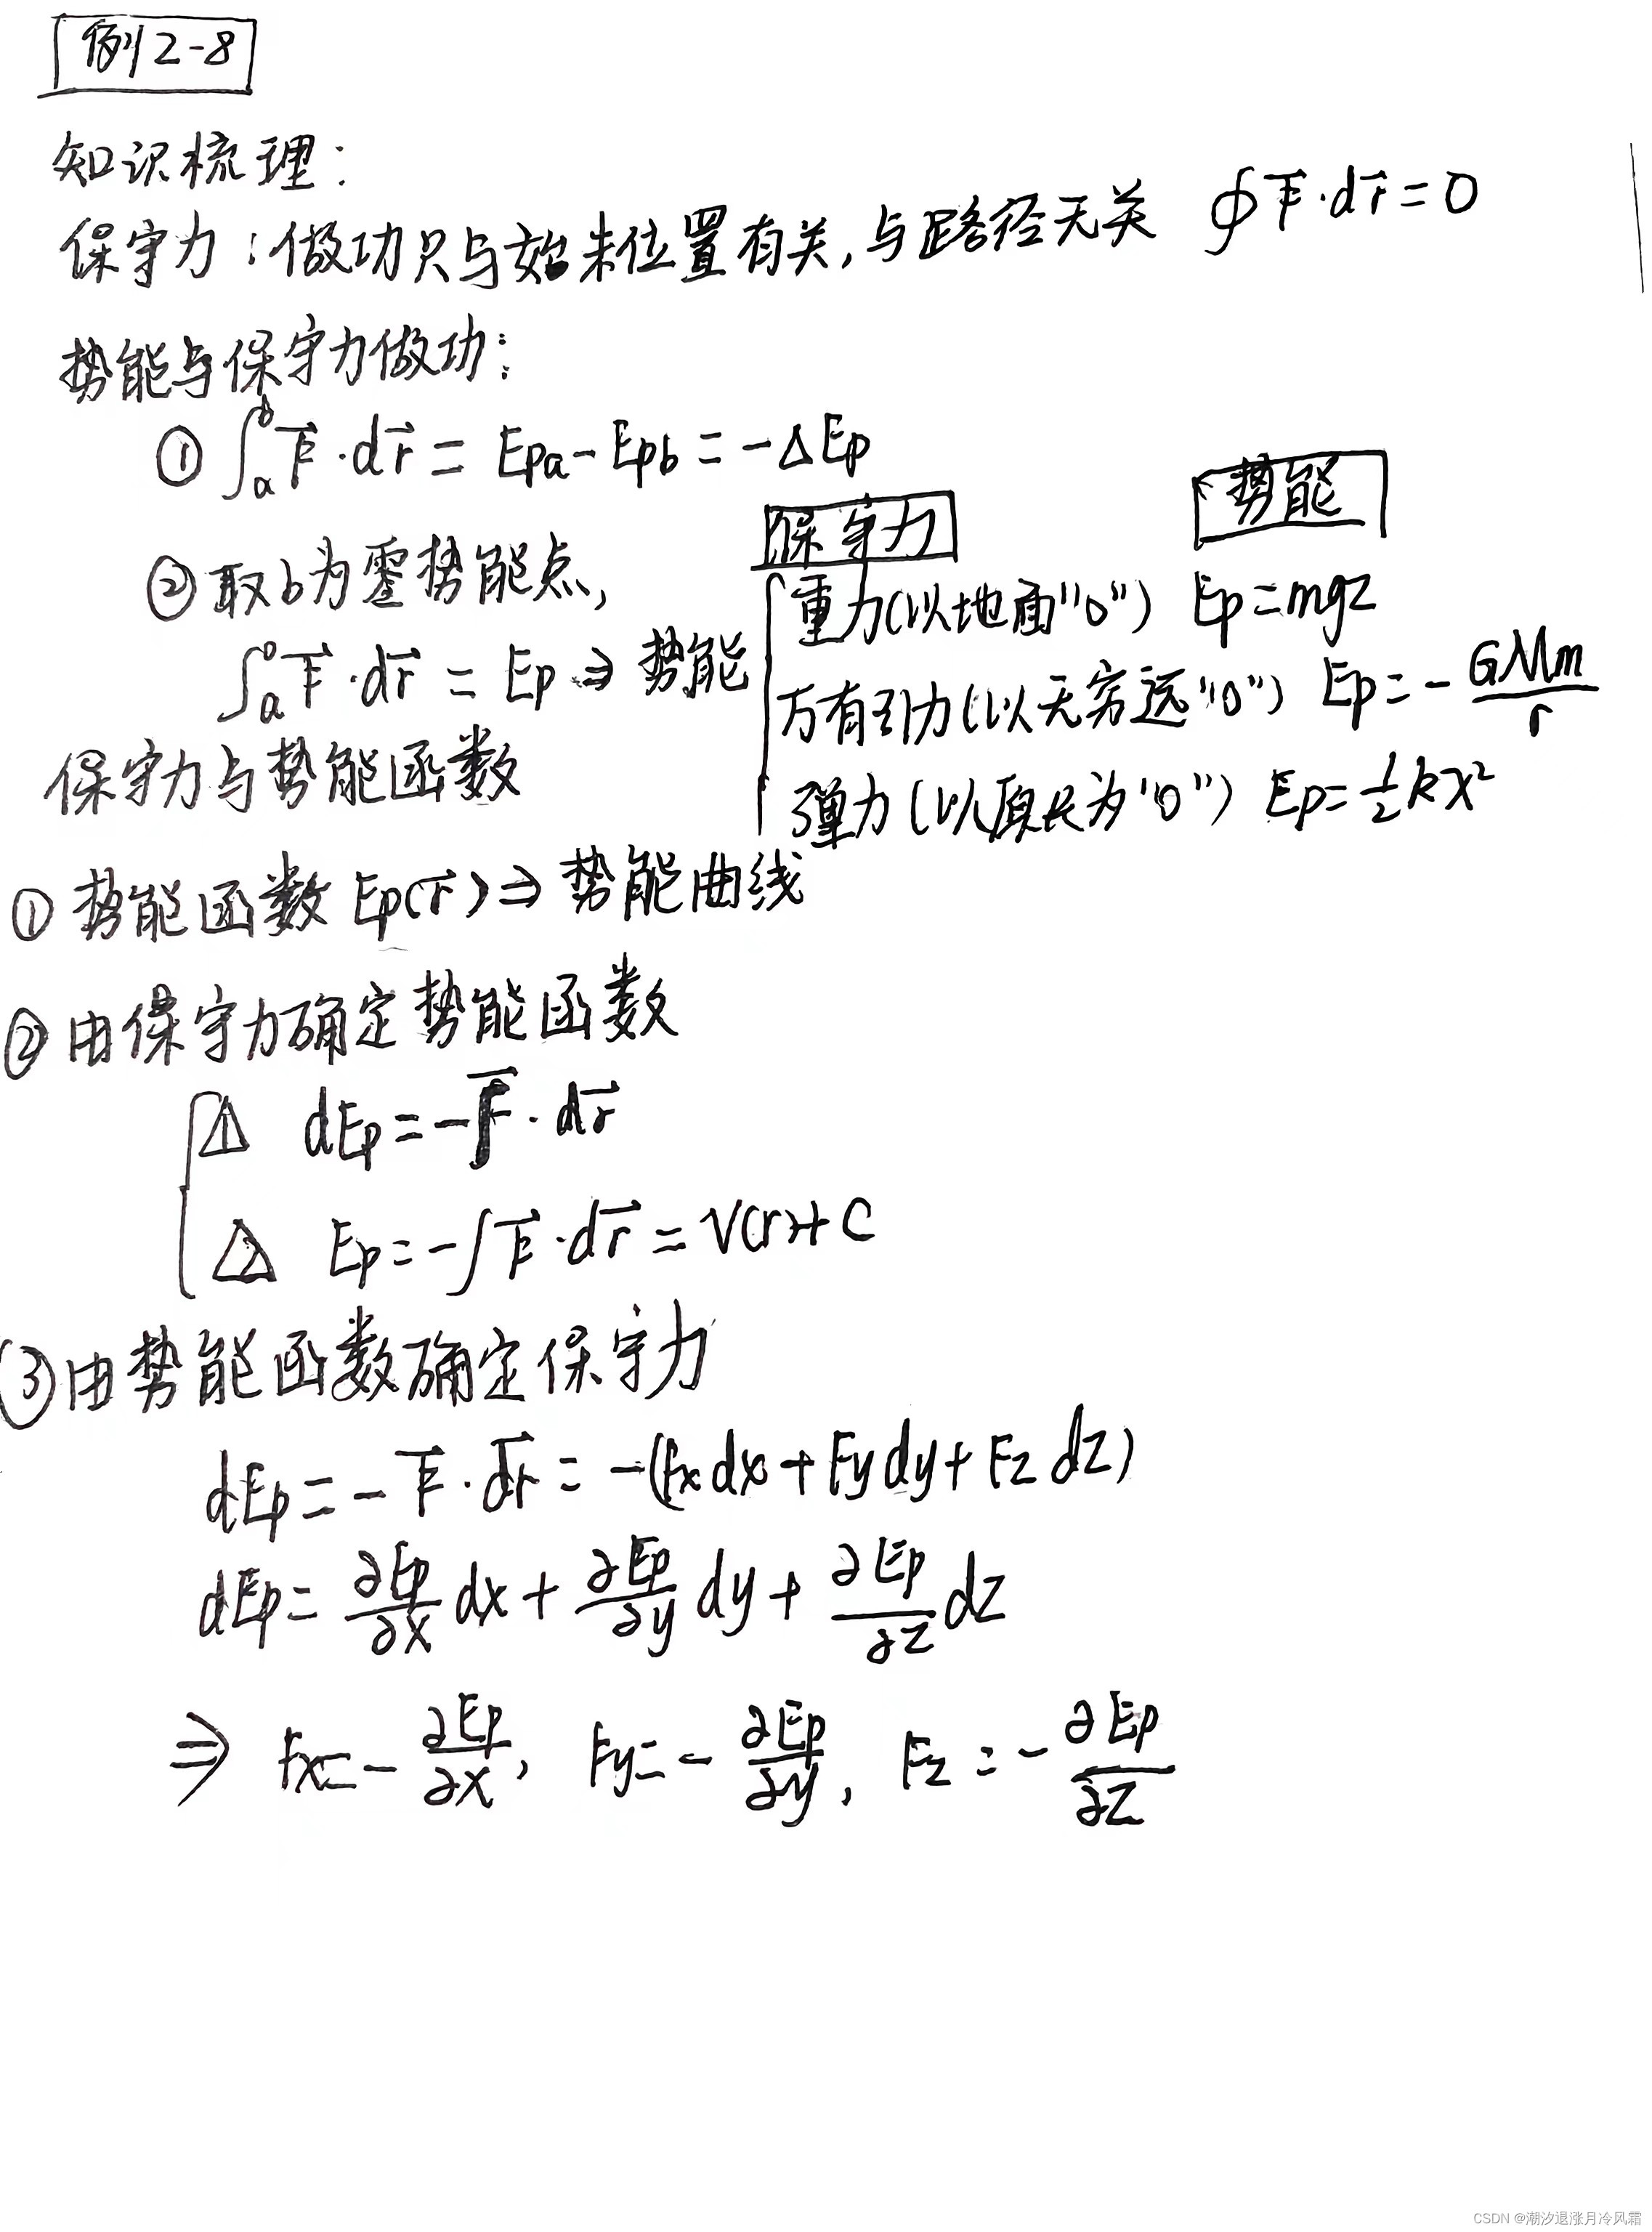 例2-8
知识梳理：
保守力：做功只与始末位置有关，与路径无关 ∮F⃗·dr⃗=0
势能与保守力做功：
① ∫ₐᵇ F⃗·dr⃗ = Epa-Epb = -ΔEp
② 取b为零势能点，
∫ₐ⁰ F⃗·dr⃗ = Ep ⇒ 势能
保守力 势能
重力(以地面"0") Ep=mgz
万有引力(以无穷远"0") Ep=-GMm/r
弹力(以原长为"0") Ep=½kx²
保守力与势能函数
① 势能函数 Ep(r⃗) ⇒ 势能曲线
② 由保守力确定势能函数
△ dEp=-F⃗·dr⃗
△ Ep=-∫F⃗·dr⃗=V(r)+C
③ 由势能函数确定保守力
dEp=-F⃗·dr⃗=-(Fxdx+Fydy+Fzdz)
dEp=∂Ep/∂x dx+∂Ep/∂y dy+∂Ep/∂z dz
⇒ Fx=-∂Ep/∂x, Fy=-∂Ep/∂y, Fz=-∂Ep/∂z
CSDN @潮汐退涨月冷风霜